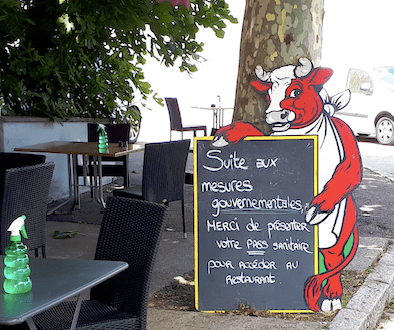 Suite aux
mesures
gouvernementales,
Merci de présenter
votre PASS sanitaire
pour accéder au
Restaurant